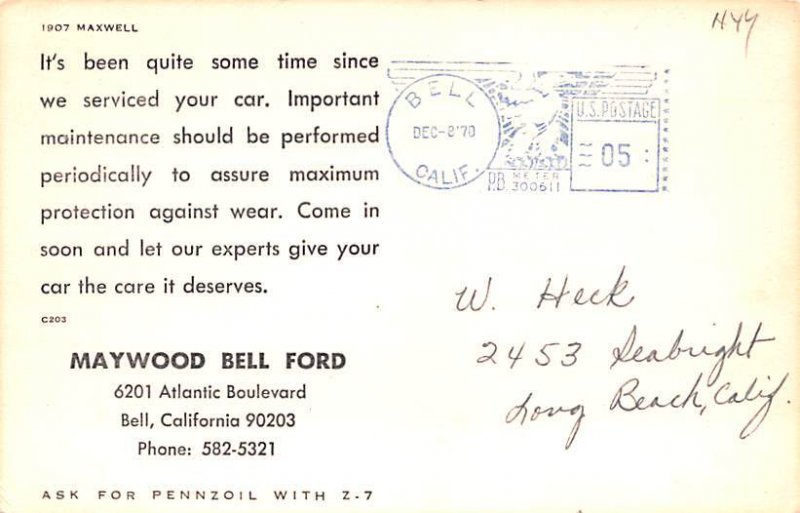 1907 MAXWELL
It's been quite some time since
we serviced your car. Important
maintenance should be performed
periodically to assure maximum
protection against wear. Come in
soon and let our experts give your
car the care it deserves.
C203
MAYWOOD BELL FORD
6201 Atlantic Boulevard
Bell, California 90203
Phone: 582-5321
ASK FOR PENNZOIL WITH Z-7
BELL
DEC-2'70
CALIF.
P.B. METER
300611
U.S. POSTAGE
05
W. Heck
2453 Seabright
Long Beach, Calif.